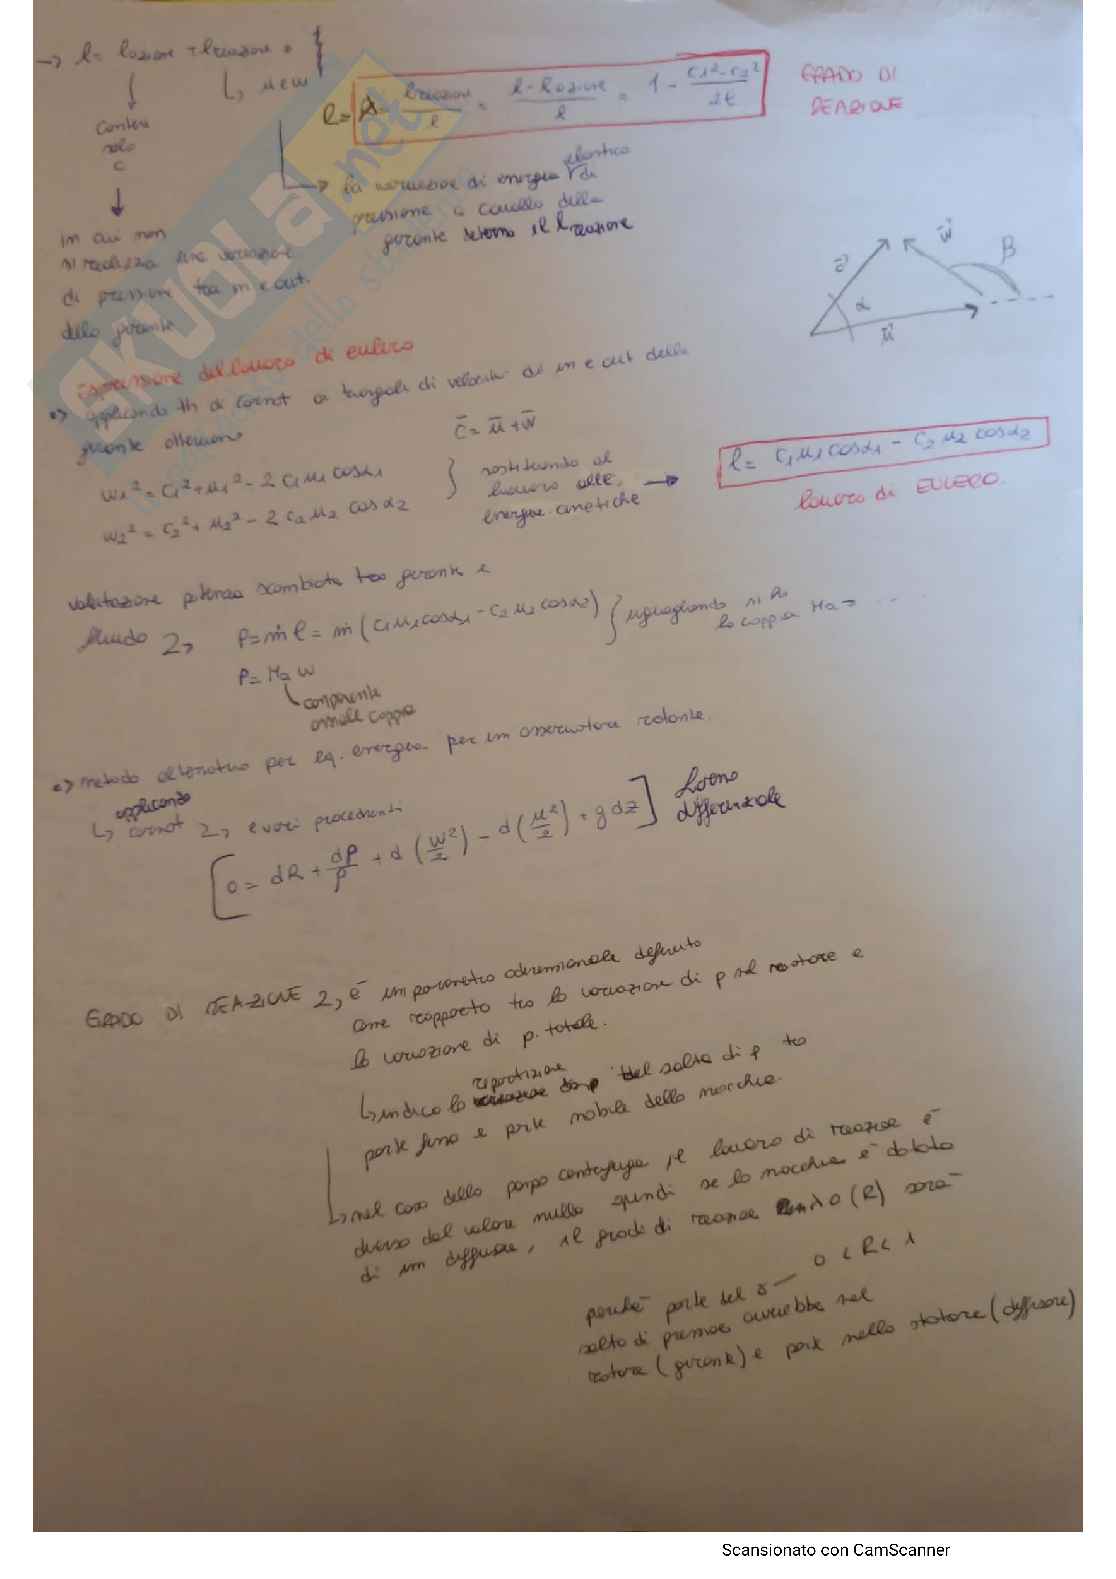 → l = lazione + lreazione =
↳ u e w
Contiene
solo
c
R = lreazione/l = l - lazione/l = 1 - c1² - c2²/2l
GRADO DI
REAZIONE
↳ la variazione di energia elastica di
pressione a cavallo della
girante determina il lreazione
in cui non
si realizza una variazione
di pressione tra in e out
della girante
c
w
β
α
u
Espressione del lavoro di eulero
=> applicando th di carnot a triangoli di velocità di in e out della
girante otteniamo
c = u + w
w1² = c1² + u1² - 2 c1 u1 cosα1
w2² = c2² + u2² - 2 c2 u2 cosα2
sostituendo al
lavoro alle
energie cinetiche →
l = c1 u1 cosα1 - c2 u2 cosα2
lavoro di EULERO.
valutazione potenza scambiata tra girante e
fluido
P = ṁ l = ṁ (c1 u1 cosα1 - c2 u2 cosα2) } uguagliando si ha
la coppia Ma = ....
P = Ma w
componente
assiale coppia
=> metodo alternativo per eq. energia per un osservatore rotante.
applicando
↳ carnot e vari procedimenti
[0 = dR + dp/ρ + d(w²/2) - d(u²/2) + g dz] forma
differenziale
GRADO DI REAZIONE è un parametro adimensionale definito
come rapporto tra la variazione di p nel rotore e
la variazione di p. totale.
↳ indica la ripartizione del salto di p tra
parte fissa e parte mobile della macchina.
↳ nel caso della pompa centrifuga il lavoro di reazione è
diverso dal valore nullo quindi se la macchina è dotata
di un diffusore, il grado di reazione (R) sarà
0 < R < 1
perché parte del
salto di pressione avverrebbe nel
rotore (girante) e parte nello statore (diffusore)
Scansionato con CamScanner
SKUOLA.net